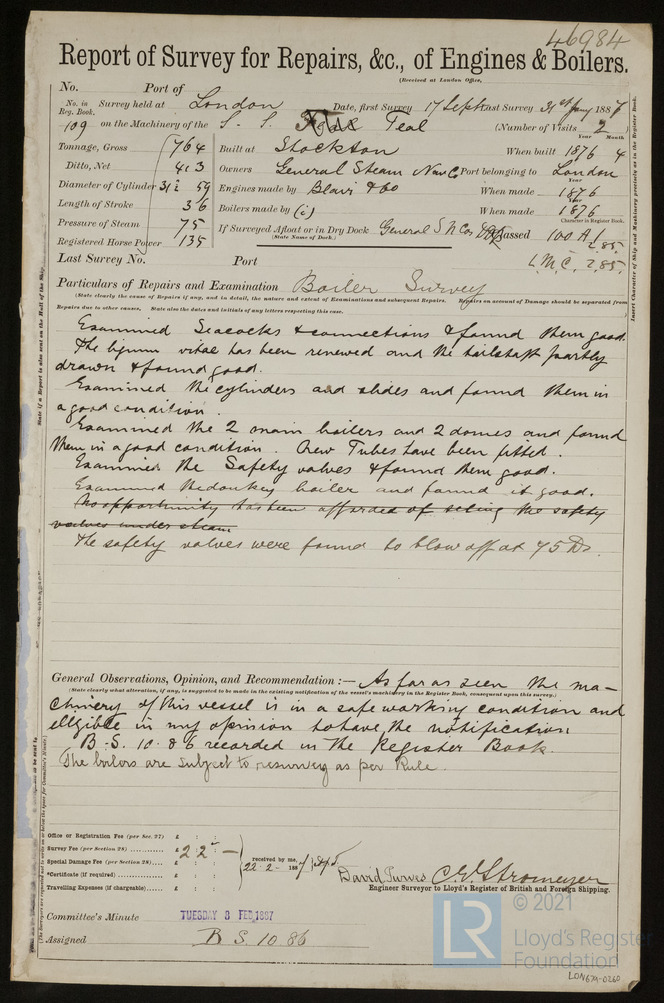 46984
Report of Survey for Repairs, &c., of Engines & Boilers.
(Received at London Office,
No. Port of
No. in Reg. Book. Survey held at London Date, first Survey 17 Sept last Survey 31st Jany 1887
109 on the Machinery of the S. S. Teal (Number of Visits 2
Year Month
Tonnage, Gross 764 Built at Stockton When built 1876 4
Ditto, Net 413 Owners General Steam Nav Co Port belonging to London
Year
Diameter of Cylinder 31½ 59 Engines made by Blair & Co When made 1876
Year
Length of Stroke 36 Boilers made by (") When made 1876
Character in Register Book.
Pressure of Steam 75 If Surveyed Afloat or in Dry Dock General S N Cos Classed 100 A1
(State Name of Dock.) 2.85
Registered Horse Power 135
Last Survey No. Port L.M.C. 2.85.
Particulars of Repairs and Examination Boiler Survey
(State clearly the cause of Repairs if any, and in detail, the nature and extent of Examinations and subsequent Repairs. Repairs on account of Damage should be separated from
Repairs due to other causes. State also the dates and initials of any letters respecting this case.
Examined Seacocks & connections & found them good.
The lignum vitae has been renewed and the tailshaft partly
drawn & found good.
Examined the cylinders and slides and found them in
a good condition.
Examined the 2 main boilers and 2 domes and found
them in a good condition. Tubes have been fitted.
Examined the Safety valves & found them good.
Examined the donkey boiler and found it good.
No opportunity has been afforded of seeing the safety
valves under steam
The safety valves were found to blow off at 75 lbs.
General Observations, Opinion, and Recommendation :— As far as seen the ma-
(State clearly what alteration, if any, is suggested to be made in the existing notification of the vessel's machinery in the Register Book, consequent upon this survey.)
chinery of this vessel is in a safe working condition and
elligible in my opinion to have the notification
B.S. 10.86 recorded in the Register Book.
The boilers are subject to resurvey as per Rule.
Office or Registration Fee (per Sec. 27) £ : :
Survey Fee (per Section 28) £ 2 : 2 : —
Special Damage Fee (per Section 28) £ : :
*Certificate (if required) £ : :
Travelling Expenses (if chargeable) £ : :
received by me,
22-2-1887
David Purves C. E. Stromeyer
Engineer Surveyor to Lloyd's Register of British and Foreign Shipping.
Committee's Minute TUESDAY 8 FEB 1887
Assigned B S. 10.86
Insert Character of Ship and Machinery precisely as in the Register Book.
© 2021
LR
Lloyd's Register
Foundation
LDN679-0260